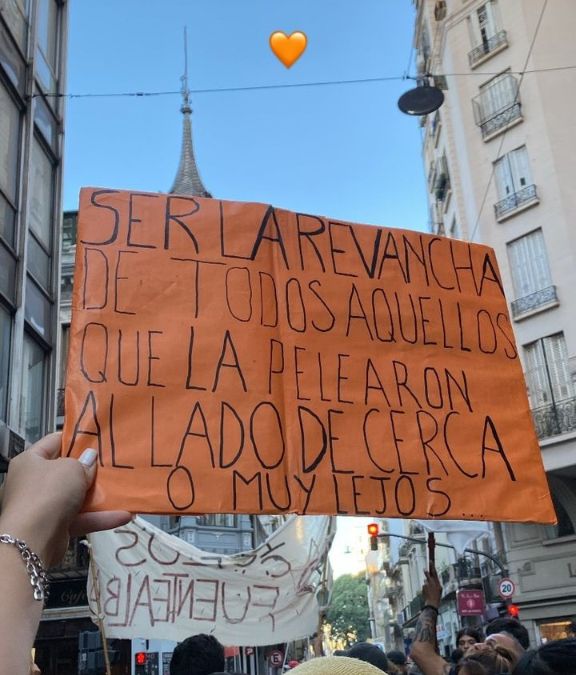 SER LA REVANCHA
DE TODOS AQUELLOS
QUE LA PELEARON
AL LADO DE CERCA
O MUY LEJOS...
20
E